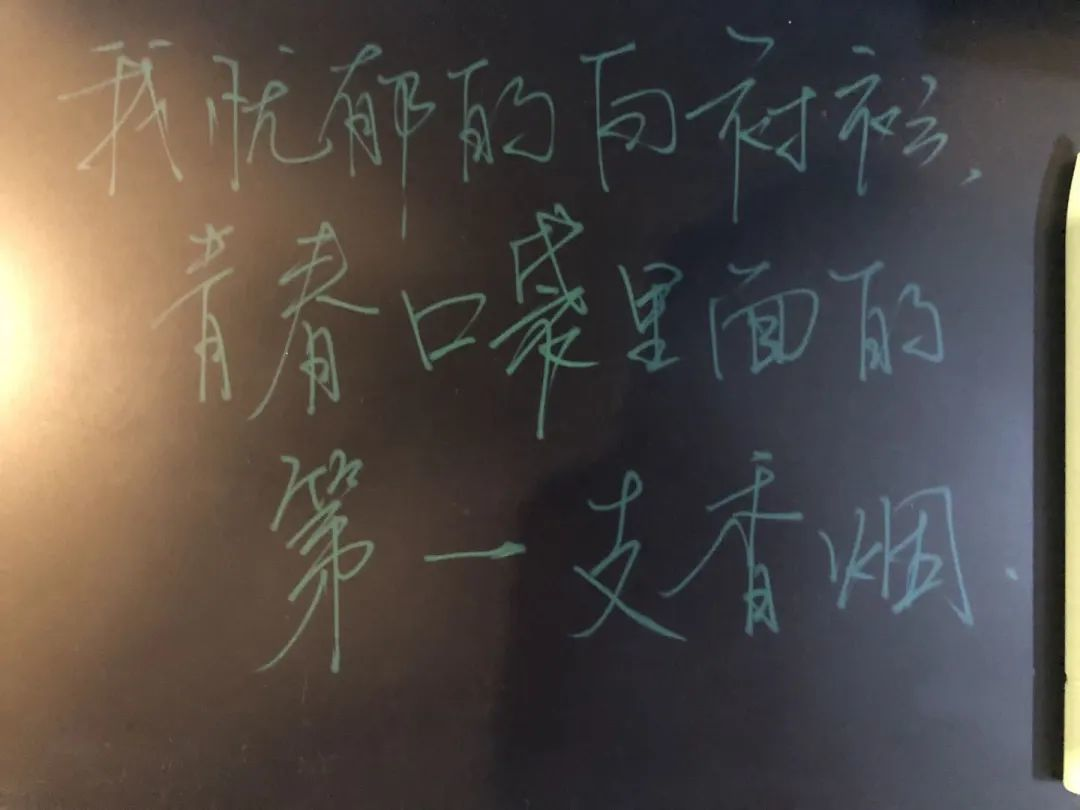 我忧郁的白衬衫,
青春口袋里面的
第一支香烟.